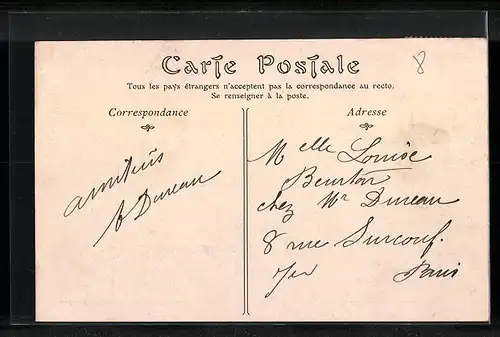 Carte Postale
8
Tous les pays étrangers n'acceptent pas la correspondance au recto.
Se renseigner à la poste.
Correspondance
amitiés
Duneau
Adresse
Melle Louise
chez Mr Duneau
8 rue Surcouf.
Paris